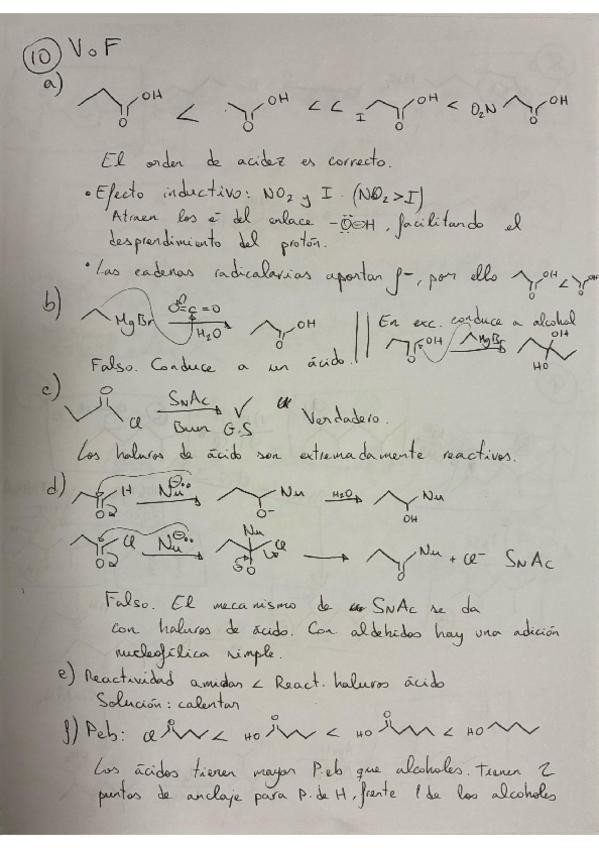 10 V o F
a) OH O < OH O << I OH O < O2N OH O
El orden de acidez es correcto.
• Efecto inductivo: NO2 y I. (NO2 > I)
Atraen los e- del enlace -O-H, facilitando el
desprendimiento del protón.
• Las cadenas radicalarias aportan ρ-, por ello OH O < OH O
b) MgBr O=C=O H2O OH O
En exc. conduce a alcohol
O OH MgBr OH HO
Falso. Conduce a un ácido.
c) O Cl SNAc ✓ Verdadero.
Buen G.S
Los haluros de ácido son extremadamente reactivos.
d) H O Nu Nu O- H2O Nu OH
Cl O Nu Nu Cl O Nu O + Cl- SNAc
Falso. El mecanismo de SNAc se da
con haluros de ácido. Con aldehidos hay una adición
nucleofílica simple.
e) Reactividad amidas < React. haluros ácido
Solución: calentar
f) Peb: Cl O < HO O < HO O < HO
Los ácidos tienen mayor P.eb que alcoholes. Tienen 2
puntos de anclaje para P. de H, frente 1 de los alcoholes